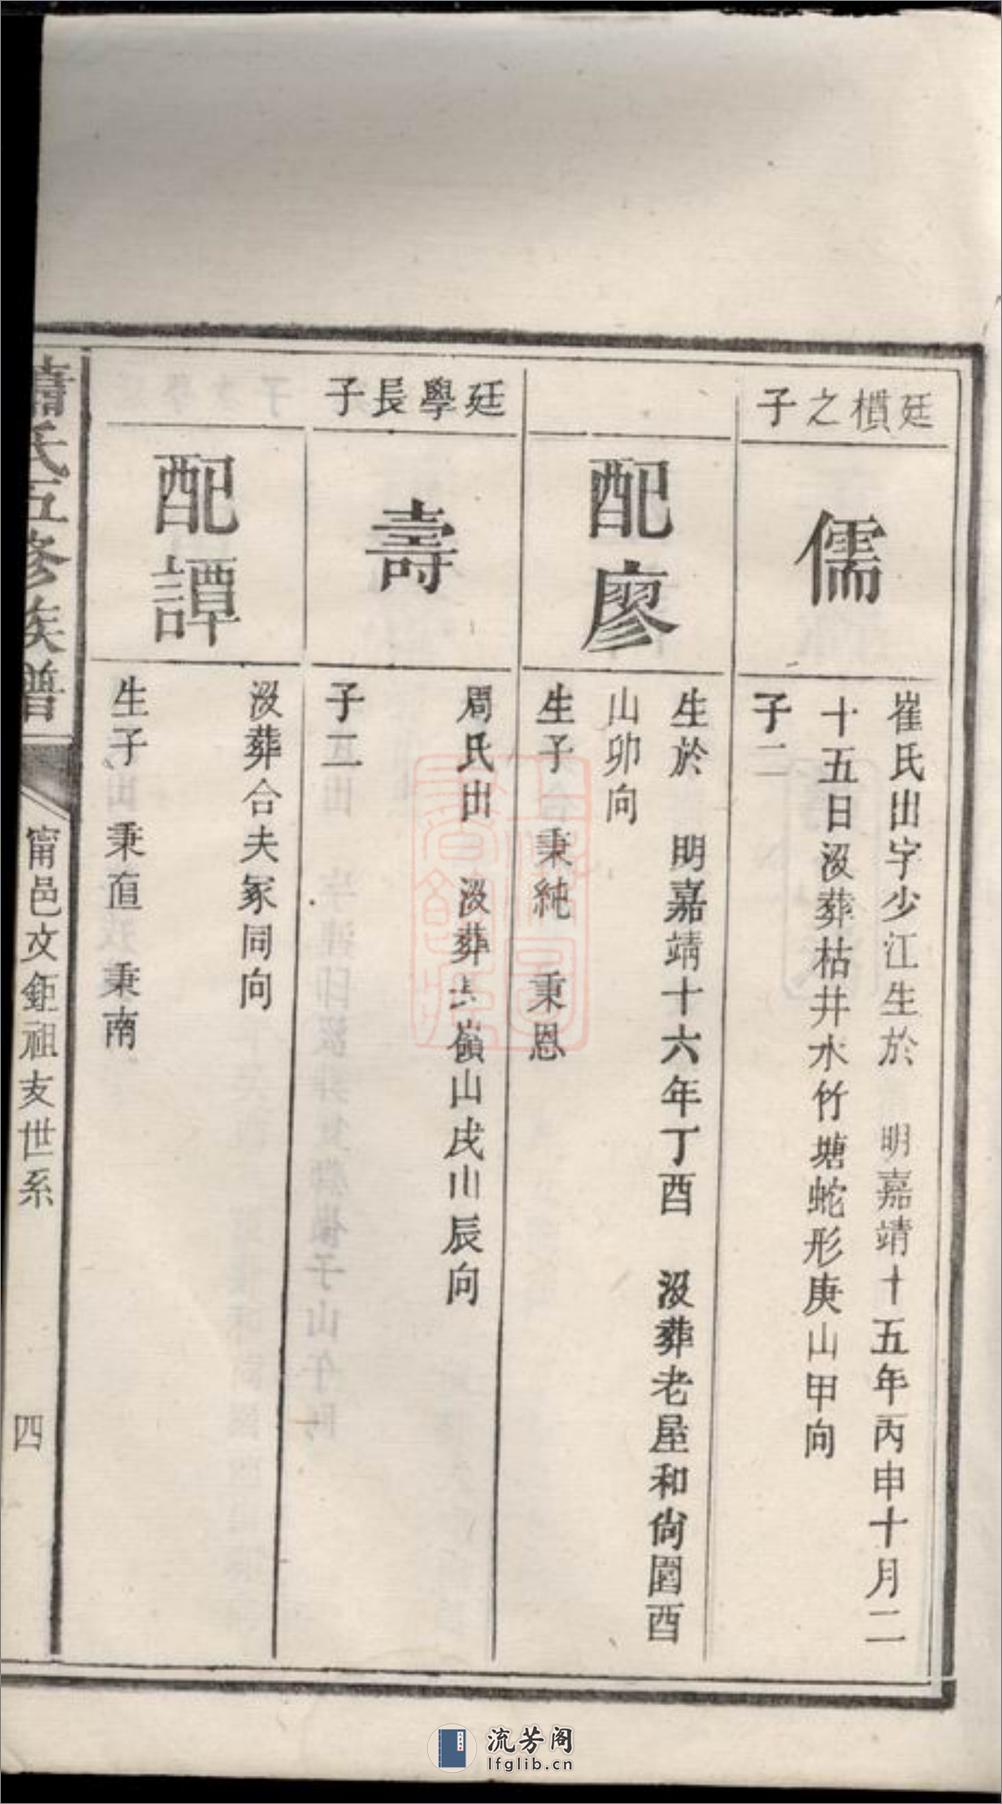 廷樻之子
儒
崔氏出字少江生於 明嘉靖十五年丙申十月二
十五日沒葬枯井水竹塘蛇形庚山甲向
子二
配廖
生於 明嘉靖十六年丁酉 沒葬老屋和尙園酉
山卯向
生子 秉純 秉恩
廷學長子
壽
周氏出 沒葬 嶺山戌山辰向
子二
配譚
沒葬合夫冢同向
生子 秉直 秉南
蕭氏五修族譜
甯邑文鉅祖支世系
四
流芳阁
lfglib.cn